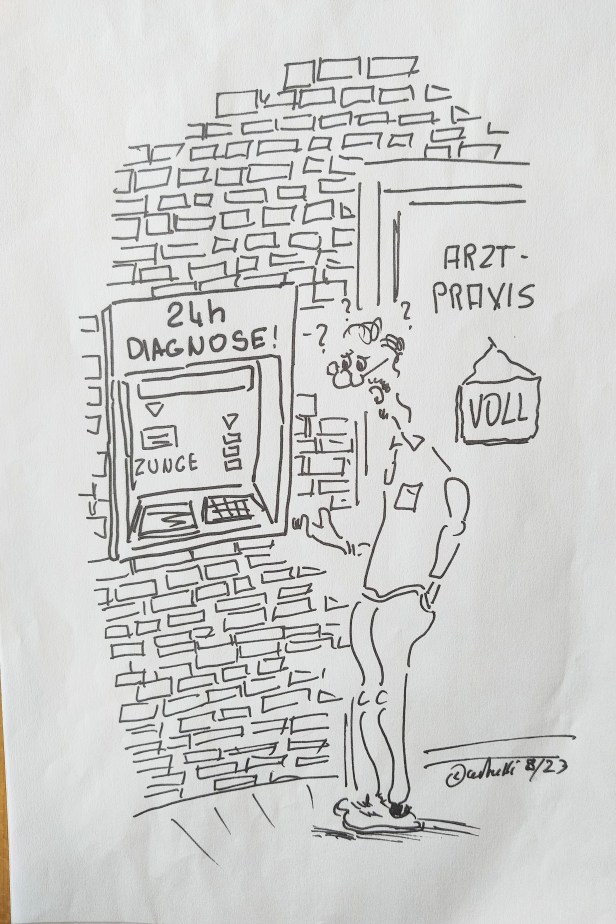 24h
DIAGNOSE!
ZUNGE
? ? ?
ARZT-
PRAXIS
VOLL
8/23